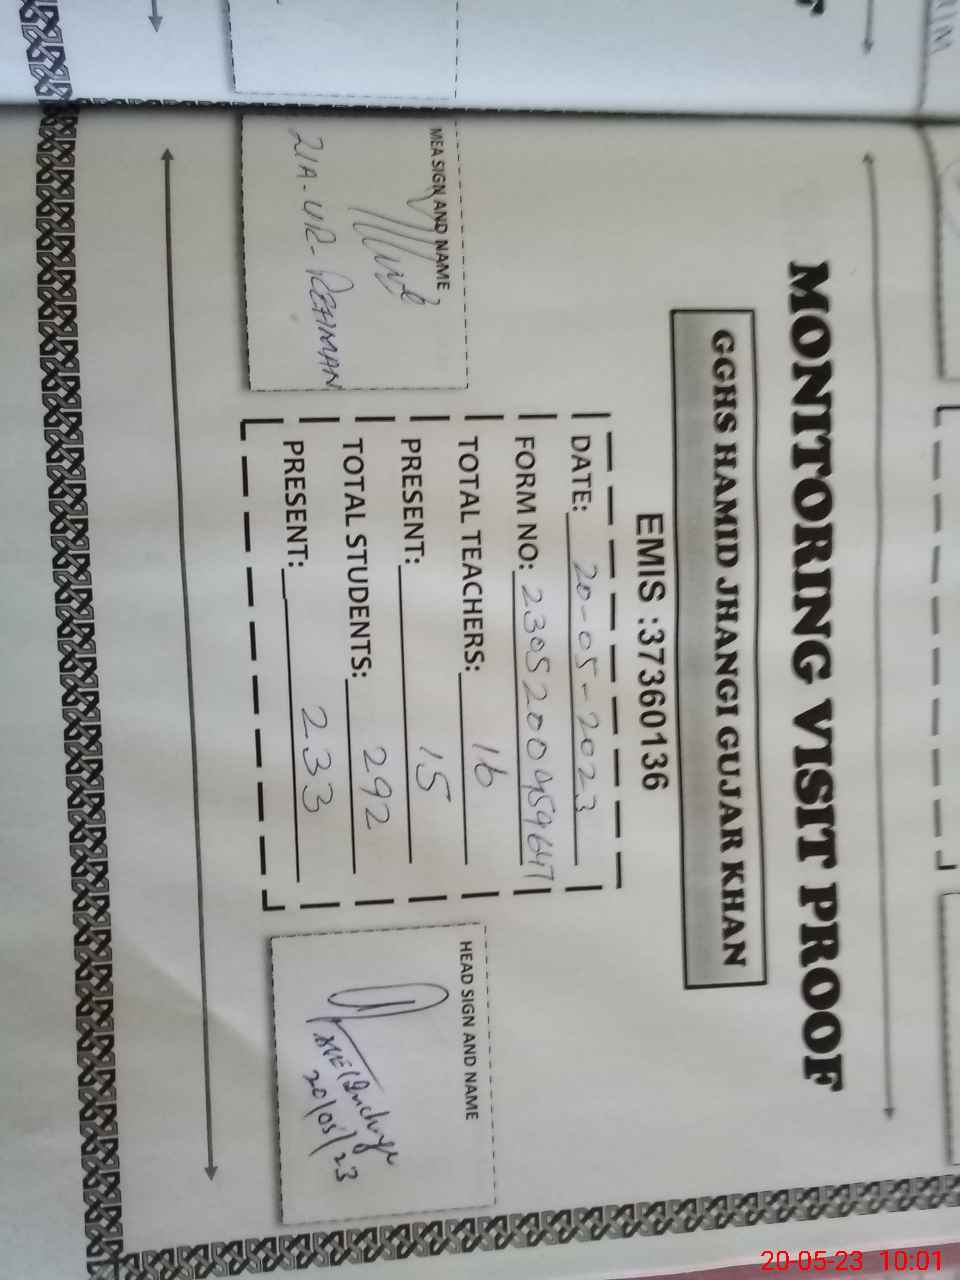 MONITORING VISIT PROOF
GGHS HAMID JHANGI GUJAR KHAN
EMIS :37360136
DATE: 20-05-2023
FORM NO:
TOTAL TEACHERS: 16
PRESENT: 15
TOTAL STUDENTS: 292
PRESENT: 233
MEA SIGN AND NAME
ZIA-UR-REHMAN
HEAD SIGN AND NAME
20/05/23
20-05-23 10:01